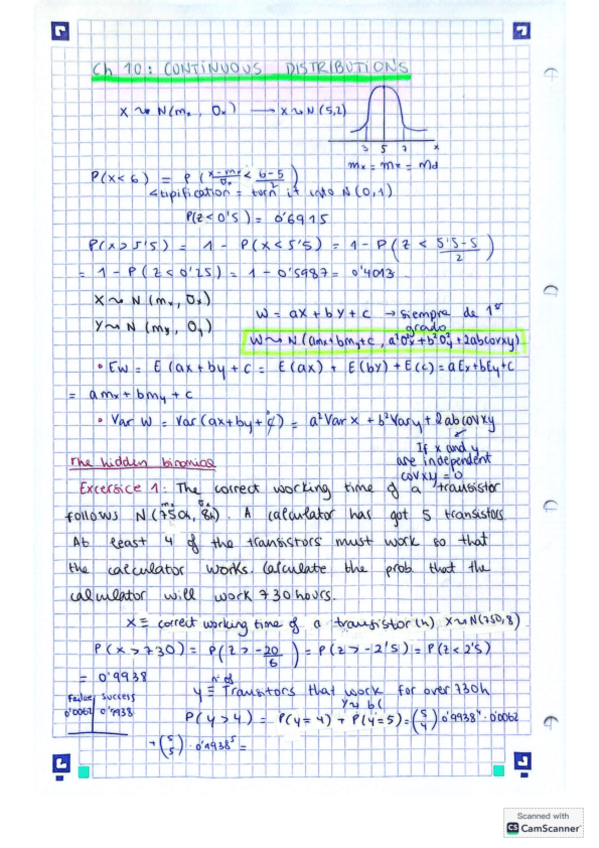 Ch 10: CONTINUOUS DISTRIBUTIONS
X ~ N(mx, σx) → X ~ N(5,2)
3 5 7 x
mx = mx = Md
P(X<6) = P(x-mx/σx < 6-5/2)
tipification = turn it into N(0,1)
P(Z<0'5) = 0'6915
P(X>5'5) = 1 - P(X<5'5) = 1 - P(Z < 5'5-5/2)
= 1 - P(Z<0'25) = 1 - 0'5987 = 0'4013
X ~ N(mx, σx)
Y ~ N(my, σy)
W = ax + by + c → siempre de 1er grado
W ~ N(amx+bmy+c, a²σ²x+b²σ²y+2abcovxy)
• EW = E(ax+by+c = E(ax) + E(by) + E(c) = aEx+bEy+c
= amx + bmy + c
• Var W = Var(ax+by+c) = a²Var x + b²Vary + 2abcovxy
If x and y
are independent
covxy = 0
The hidden binomial
Excersice 1: The correct working time of a transistor
follows N(750h, 8h). A calculator has got 5 transistors
At least 4 of the transistors must work so that
the calculator works. Calculate the prob. that the
calculator will work 730 hours.
X ≡ correct working time of a transistor (h) X~N(750,8)
P(X>730) = P(Z > -20/8) = P(Z > -2'5) = P(Z < 2'5)
= 0'9938
Failure Success
0'0062 0'9938
nº of
Y ≡ Transitors that work for over 730h
Y~ b(
P(Y>4) = P(Y=4) + P(Y=5) = (5 4) 0'9938⁴ · 0'0062
+ (5 5) · 0'9938⁵ =
Scanned with
CS CamScanner